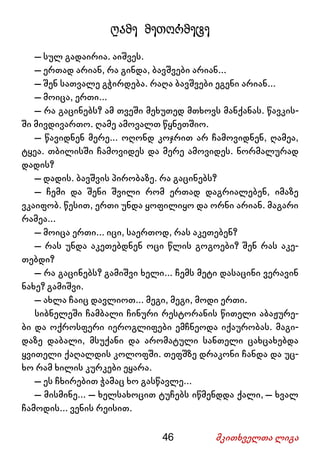 ღამე მეთორმეტე
— სულ გადაირია. აიშვეს.
— ერთად არიან, რა გინდა, ბავშვები არიან...
— შენ სათვალე გჭირდება. რაღა ბავშვები ეგენი არიან...
— მოიცა, ერთი...
— რა გაცინებს? ამ თვეში მეხუთედ მთხოვს მანქანას. წავკის-
ში მივდივართო. ღამე ამოვალთ წყნეთშიო.
— წავიდნენ მერე... ოღონდ კოჯრით არ ჩამოვიდნენ, ღამეა,
ტყეა. თბილისში ჩამოვიდეს და მერე ამოვიდეს. ნორმალურად
დადის?
— დადის. ბავშვის პირობაზე. რა გაცინებს?
— ჩემი და შენი შვილი რომ ერთად დაგრიალებენ, იმაზე
ვკაიფობ. წესით, ერთი უნდა ყოფილიყო და ორნი არიან. მაგარი
რამეა...
— მოიცა ერთი... იცი, საერთოდ, რას აკეთებენ?
— რას უნდა აკეთებდნენ ოცი წლის გოგოები? შენ რას აკე-
თებდი?
— რა გაცინებს? გამიშვი ხელი... ჩემს მეტი დასაცინი ვერავინ
ნახე? გამიშვი.
— ახლა ჩაიც დავლიოთ... მეგი, მეგი, მოდი ერთი.
სიბნელეში ჩამბალი ჩინური რესტორანის წითელი აბაჟურე-
ბი და ოქროსფერი იეროგლიფები ემჩნეოდა იქაურობას. მაგი-
დაზე დაბალი, მსუქანი და არომატული სანთელი ცახცახებდა
ყვითელი ქაღალდის კოლოფში. თეფშზე დრაკონი ჩანდა და უც-
ხო რამ ხილის კურკები ეყარა.
— ეს ჩხირებით ჭამაც ხო გასწავლე...
— მისმინე... — ხელსახოცით ტუჩებს იწმენდდა ქალი, — ხვალ
ჩამოდის... ვენის რეისით.
46 მკითხველთა ლიგა